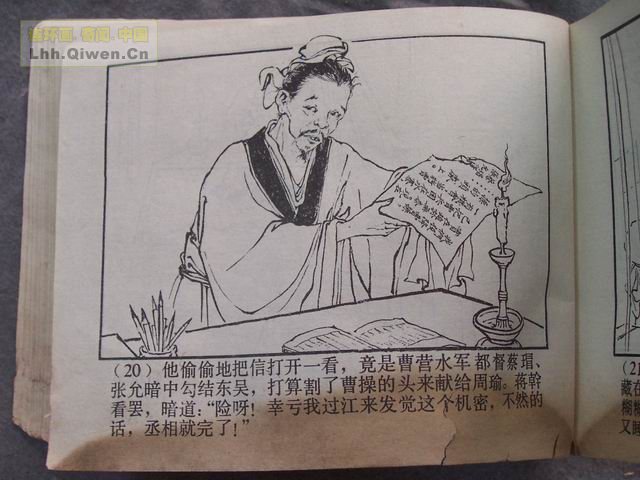 连环画.奇闻.中国
Lhh.Qiwen.Cn
(20) 他偷偷地把信打开一看，竟是曹营水军都督蔡瑁、
张允暗中勾结东吴，打算割了曹操的头来献给周瑜。蒋幹
看罢，暗道：“险呀！幸亏我过江来发觉这个机密，不然的
话，丞相就完了！”
(21
藏在
糊糊
又睡